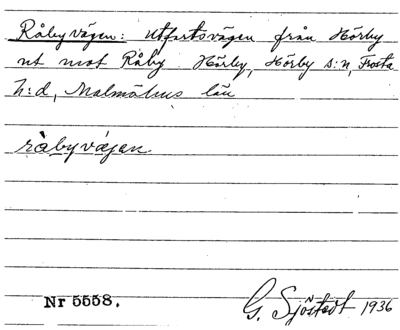 Råbyvägen: utfartsvägen från Hörby
ut mot Råby Hörby, Hörby s:n, Frosta
h:d, Malmöhus län
råbyvägen
Nr 5558.
G. Sjöstedt 1936